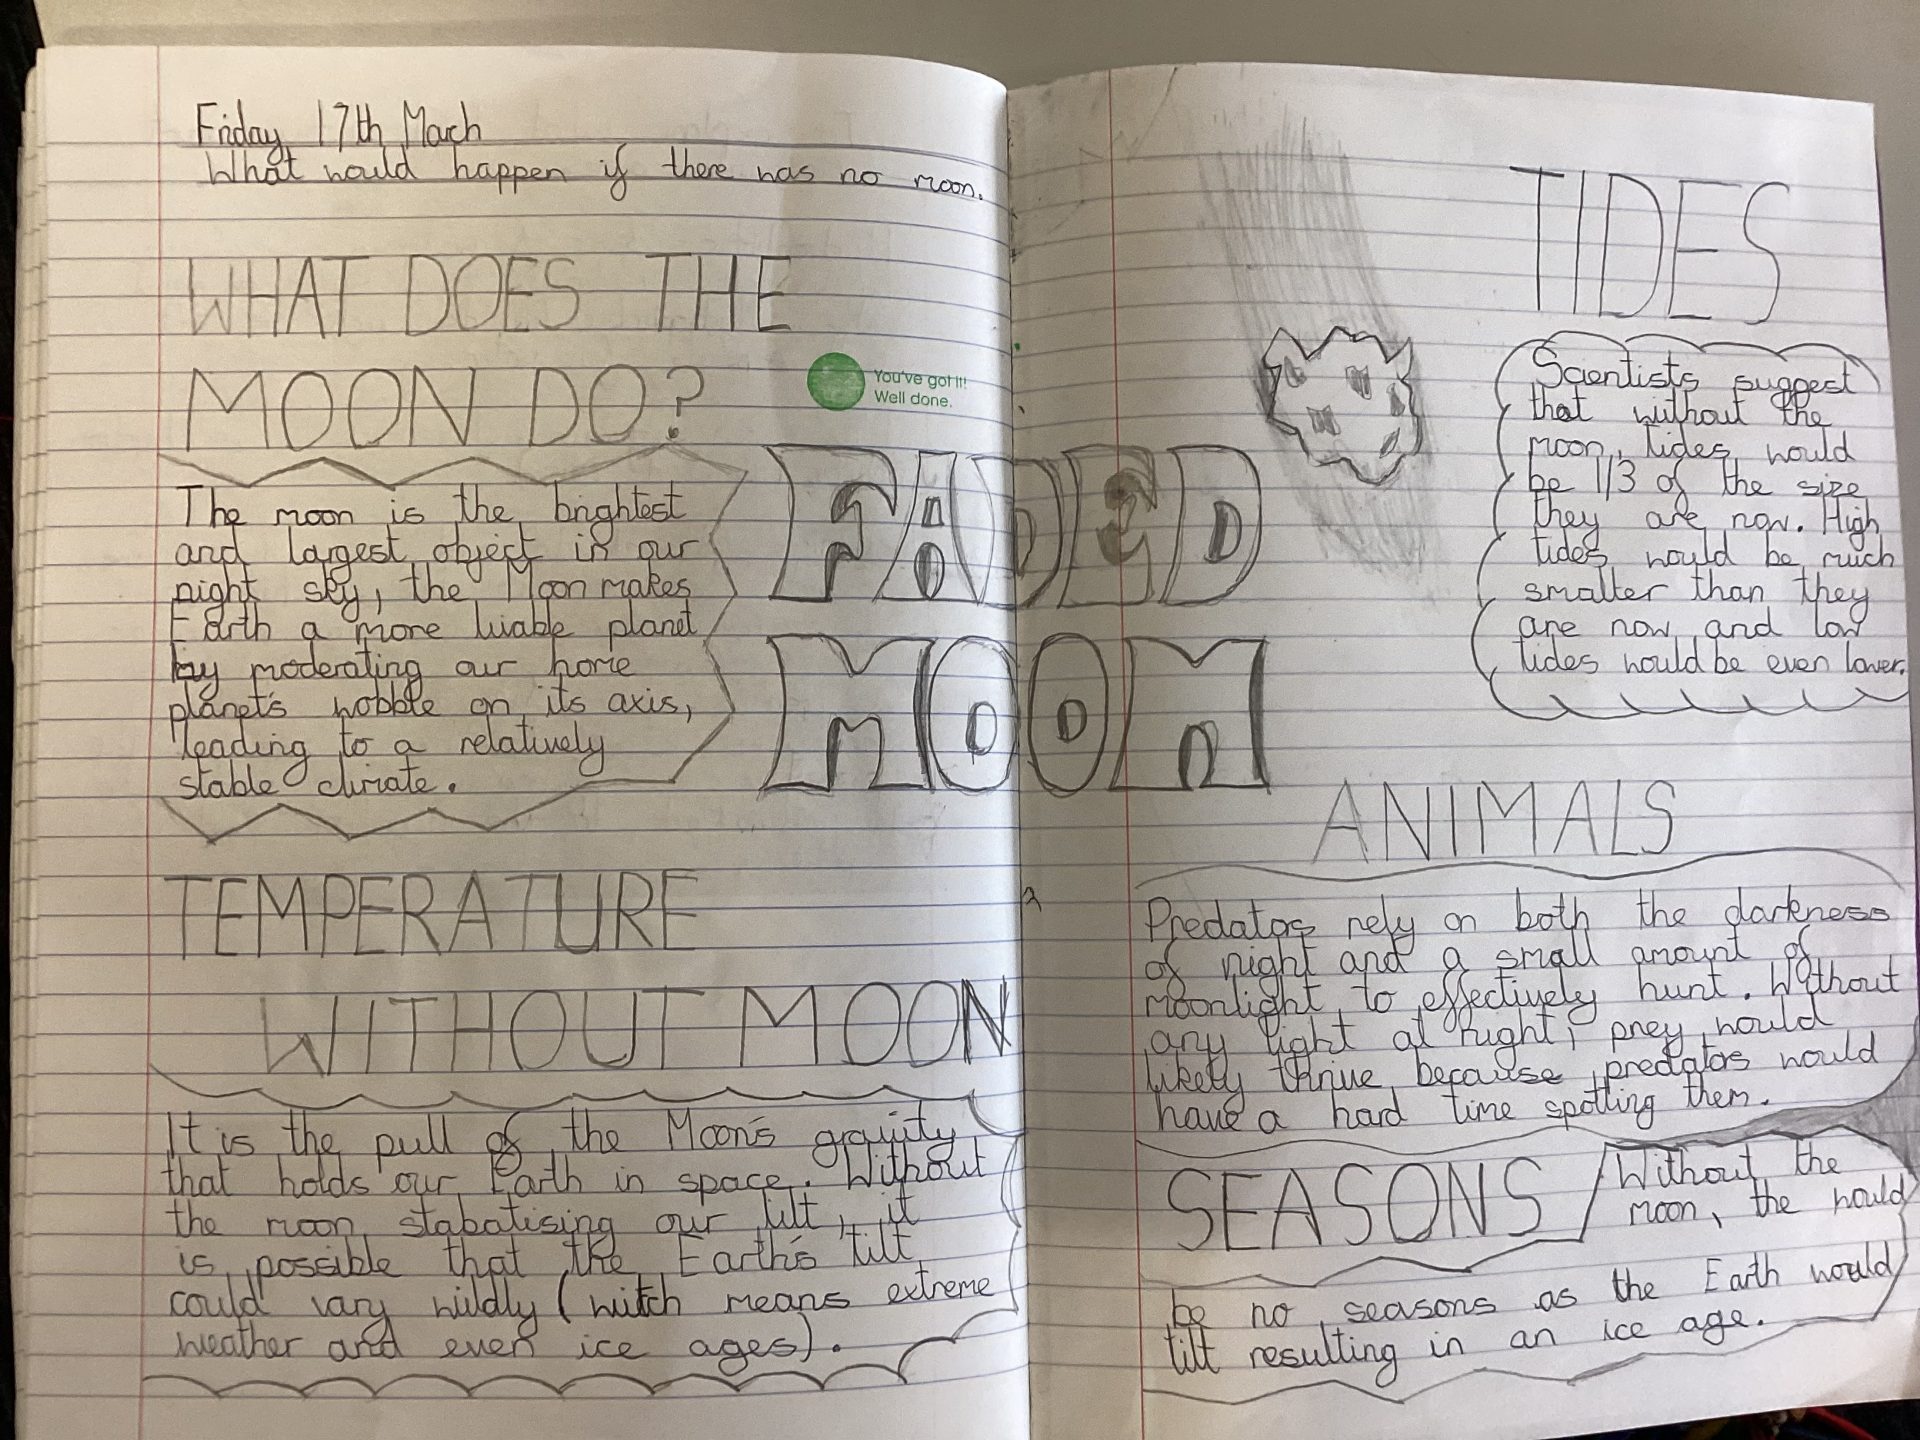 Friday 17th March
What would happen if there was no moon.
WHAT DOES THE
MOON DO?
You've got it!
Well done.
The moon is the brightest
and largest object in our
night sky, the Moon makes
Earth a more livable planet
by moderating our home
planet's wobble on its axis,
leading to a relatively
stable climate.
FADED
MOON
TEMPERATURE
WITHOUT MOON
It is the pull of the Moon's gravity
that holds our Earth in space. Without
the moon stabatising our tilt, it
is possible that the Earth's tilt
could vary wildly (witch means extreme
weather and even ice ages).
TIDES
Scientists suggest
that without the
moon, tides would
be 1/3 of the size
they are now. High
tides would be much
smaller than they
are now and low
tides would be even lower.
ANIMALS
Predators rely on both the darkness
of night and a small amount of
moonlight to effectively hunt. Without
any light at night, prey would
likely thrive because predators would
have a hard time spotting them.
SEASONS
Without the
moon, the would
be no seasons as the Earth would
tilt resulting in an ice age.